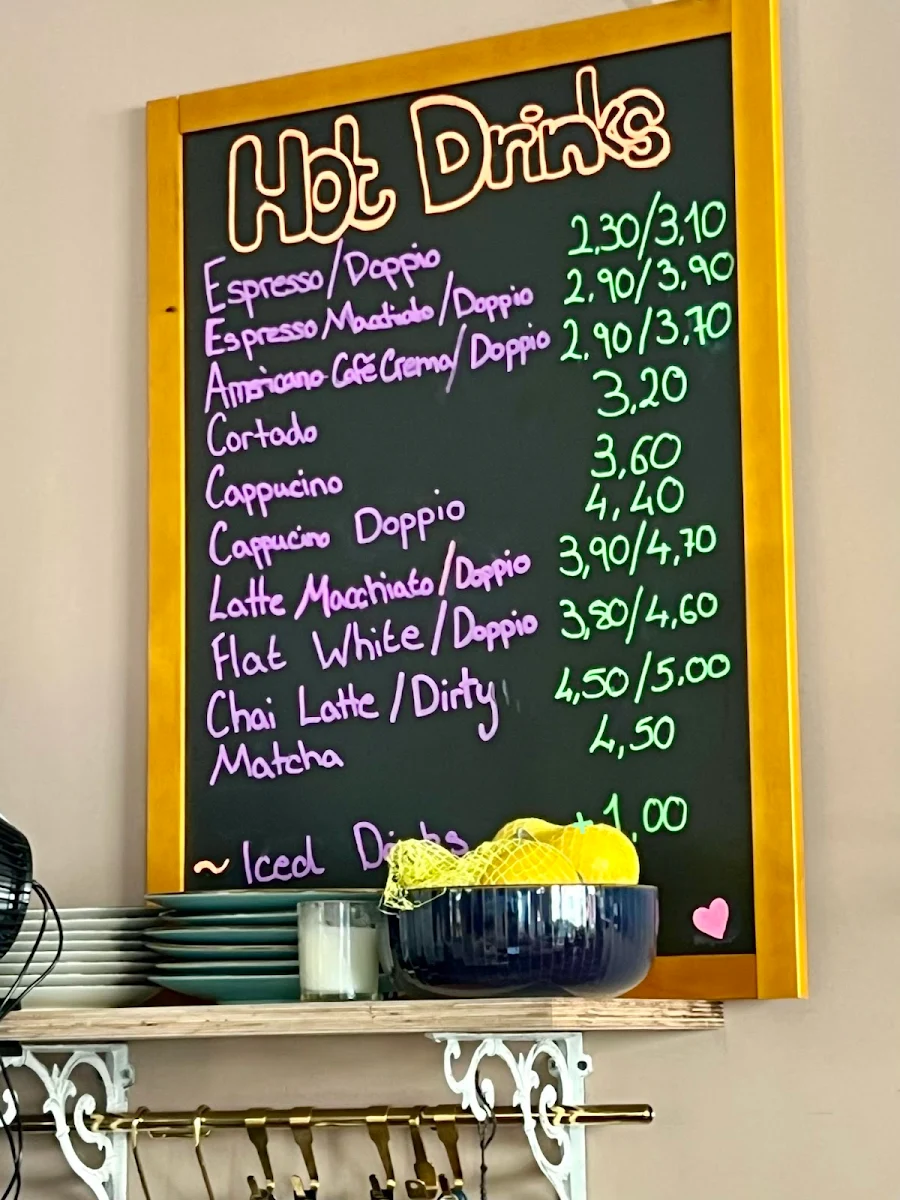 Hot Drinks
Espresso/Doppio 2,30/3,10
Espresso Macchiato/Doppio 2.90/3,90
Americano Café Crema/Doppio 2.90/3,70
Cortado 3,20
Cappucino 3,60
Cappucino Doppio 4,40
Latte Macchiato/Doppio 3,90/4,70
Flat White/Doppio 3,80/4,60
Chai Latte/Dirty 4,50/5,00
Matcha 4,50
~ Iced Drinks +1,00